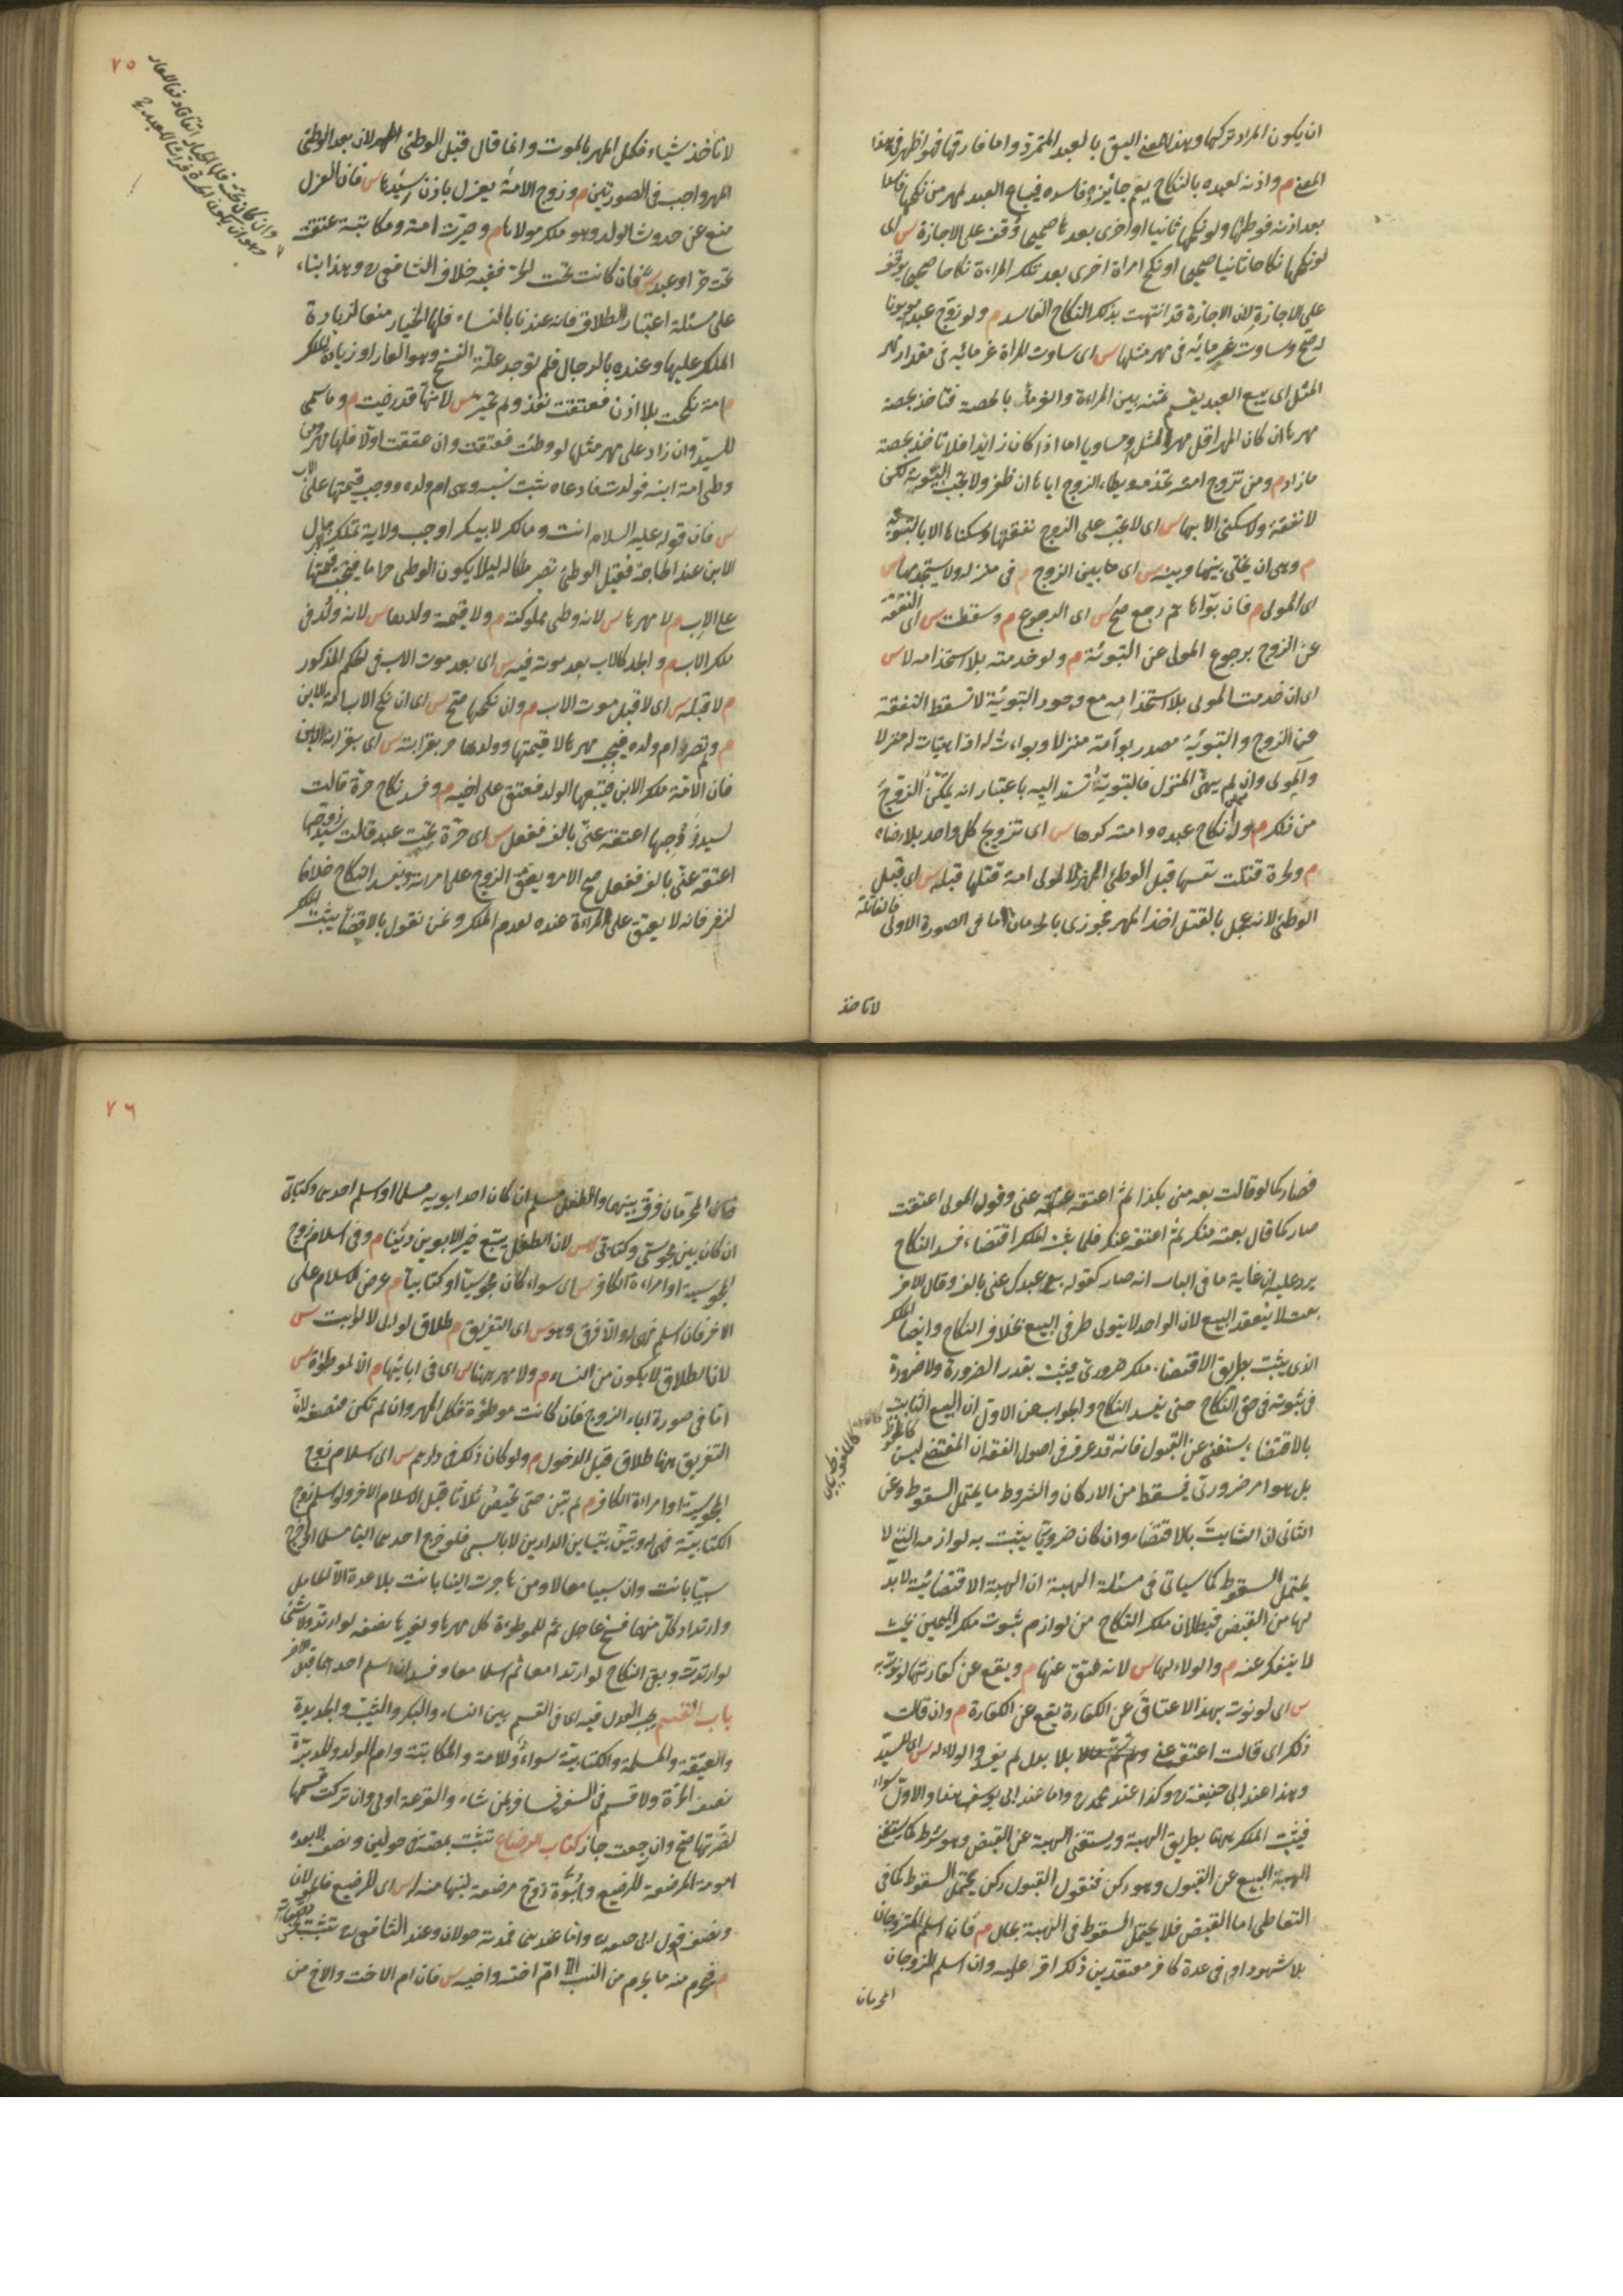 ان يكون المراد تركها وهذا المعنى اليق بالعبد المتمرد واما فارقها فهو اظهر في هذا
المعنى م واذنه لعبده بالنكاح يعم جائزه وفاسده فيباع العبد لمهر من نكحها فاسدا
بعد اذنه فوطئها ولو نكحها ثانيا او اخرى بعدها صحيحا وقف على الاجازة س اى
لو نكحها نكاحا ثانيا صحيحا او نكح امراة اخرى بعد تلك المراة نكاحا صحيحا يوقف
على الاجازة لان الاجازة قد انتهت بذلك النكاح الفاسد م ولو زوج عبدا مديونا
له صح وساوت غرمائه في مهر مثلها س اى ساوت المراة غرمائه في مقدار مهر
المثل اى يبيع العبد يقسم ثمنه بين المراة والغرماء بالحصة فتاخذ بحصة
مهرها ان كان المهر اقل من مهر المثل او مساويا اما اذا كان زايدا فلا تاخذ بحصة
ما زاد م ومن تزوج امته تخدمه ويطاء الزوج اياها ان ظفر ولا تجب التبوئة لكن
لا نفقة ولا سكنى الا بها س اى لا تجب على الزوج نفقتها وسكناها الا بالتبوئة
م وهى ان يخلى بينها وبينه س اى ما بين الزوج م في منزله ولا يستخدمها س
اى المولى م فان بوأها ثم رجع صح س اى الرجوع م وسقطت س اى النفقة
عن الزوج برجوع المولى عن التبوئة م ولو خدمته بلا استخدامه لا س
اى ان خدمت المولى بلا استخدامه مع وجود التبوئة لا تسقط النفقة
عن الزوج والتبوئة مصدر بوأته منزلا وبواءت له اذا هيأت له منزلا
والمولى وان لم يهيئ المنزل فالتبوية تسند اليه باعتبار انه يمكن الزوج
من ذلك م وله انكاح عبده وامته كرها س اى تزويج كل واحد بلا رضاه
م ولحرة قتلت نفسها قبل الوطئ المهر لا لمولى امة قتلها قبله س اى قبل
الوطئ لانه عجل بالقتل اخذ المهر فجوزى بالحرمان اما في الصورة الاولى فالقاتلة
لا تاخذ
٧٥
لا تاخذ شياء فكل المهر بالموت وانما قال قبل الوطئ لان بعد الوطئ
المهر واجب في الصورتين م وزوج الامة يعزل باذن سيدها س فان العزل
منع عن حدوث الولد وهو ملك مولاها م وخيرت امة ومكاتبة عتقت
تحت حر او عبد س فان كانت تحت الحر ففيه خلاف الشافعى وهذا بناء
على مسئلة اعتبار الطلاق فانه عندنا بالنساء فلها الخيار منعا لزيادة
الملك عليها وعنده بالرجال فلم توجد علة الفسخ وهو العار او زيادة الملك
م امة نكحت بلا اذن فعتقت نفذ ولم تخير س لانها قد رضيت م وما سمى
للسيد وان زاد على مهر مثلها لو وطئت فعتقت وان عتقت اولا فلها م ومن
وطى امة ابنه فولدت فادعاه يثبت نسبه وهى ام ولده ووجب قيمتها على الاب
س فان قوله عليه السلام انت ومالك لابيك اوجب ولاية تملك مال
الابن عند الحاجة فقبل الوطئ تصير ملكا له ليلا يكون الوطى حراما فيجب قيمتها
على الاب م لا مهرها س لانه وطى مملوكته م ولا قيمة ولدها س لانه ولد في
ملك الاب م والجد كالاب بعد موته فيه س اى بعد موت الاب في الحكم المذكور
م لا قبله س اى لا قبل موت الاب م وان نكحها صح س اى ان نكح الاب امة الابن
م ولم تصر ام ولده ويجب مهرها لا قيمتها وولدها حر بقرابته س اى بقرابة الابن
فان الامة ملك الابن فيتبعها الولد فعتق على اخيه م وفسد نكاح حرة قالت
لسيد زوجها اعتقه عنى بالف ففعل س اى حرة تحت عبد قالت لسيد زوجها
اعتقه عنى بالف ففعل صح الامر ويعتق الزوج على امراته ويفسد النكاح خلافا
لزفر فانه لا يعتق على المراءة عنده لعدم الملك ونحن نقول بالاقتضاء يثبت الملك
فصار كما لو قالت بعه منى بكذا ثم اعتقه عنى وقول المولى اعتقت
صار كما قال بعته منك ثم اعتقه عنك فلما يثبت الملك اقتضاء فسد النكاح
يرد عليه ان غاية ما في الباب انه صار كقوله بع عبدك عنى بالف وقال الاخر
بعت لا ينعقد البيع لان الواحد لا يتولى طرفى البيع بخلاف النكاح وايضا الملك
الذى يثبت بطريق الاقتضاء ملك ضرورى فيثبت بقدر الضرورة ولا ضرورة
في ثبوته في حق النكاح حتى يفسد النكاح والجواب عن الاول ان البيع الثابت
بالاقتضاء يستغنى عن القبول فانه قد عرف في اصول الفقه ان المقتضى ليس كالملفوظ
بل هو امر ضرورى فيسقط من الاركان والشروط ما يحتمل السقوط وعن
الثانى ان الثابت بالاقتضاء وان كان ضروريا يثبت به لوازمه التى لا
يحتمل السقوط كما سياتى في مسئلة الهبة ان الهبة الاقتضائية لا بد
لها من القبض فبطلان ملك النكاح من لوازم ثبوت ملك اليمين بحيث
لا ينفك عنه م والولاء لها س لانه عتق عنها م ويقع عن كفارتها لو نوت به
س اى لو نوت بهذا الاعتاق عن الكفارة يقع عن الكفارة م وان قالت
ذلك اى قالت اعتقه عنى بلا بدل لم يفسد والولاء له س اى للسيد
وهذا عند ابى حنيفة وكذا عند محمد واما عند ابى يوسف هذا والاول سواء
فيثبت الملك هنا بطريق الهبة ويستغنى الهبة عن القبض وهو شرط كما يستغنى
الهبة البيع عن القبول وهو ركن فنقول القبول ركن يحتمل السقوط كما في
التعاطى اما القبض فلا يحتمل السقوط في الهبة بحال م فان اسلم المتزوجان
بلا شهود او في عدة كافر معتقدين ذلك اقرا عليه وان اسلم الزوجان
المحرمان
٧٦
المحرمان فرق بينهما والطفل مسلم ان كان احد ابويه مسلما او اسلم احدهما وكتابى
ان كان بين مجوسى وكتابى س لان الطفل يتبع خير الابوين دينا م وفى اسلام زوج
المجوسية او امراءة الكافر س اى سواء كان مجوسيا او كتابيا م عرض الاسلام على
الاخر فان اسلم فهى له والا فرق وهو س اى التفريق م طلاق لو ابى لا لو ابت س
لان الطلاق لا يكون من النساء م ولا مهر هنا س اى في ابائها م الا لموطؤة س
اما في صورة اباء الزوج فان كانت موطؤة فكل المهر وان لم تكن فنصفه لان
التفريق هنا طلاق قبل الدخول م ولو كان ذلك في دارهم س اى اسلام زوج
المجوسية او امراءة الكافر م لم تبن حتى تحيض ثلاثا قبل اسلام الاخر ولو اسلم زوج
الكتابية فهى له وتبين بتباين الدارين لا بالسبى فلو خرج احدهما الينا مسلما او اخرج
سبيا بانت وان سبيا معا لا ومن هاجرت الينا بانت بلا عدة الا الحامل
وارتداد كل منهما فسخ عاجل ثم للموطؤة كل مهرها ولغيرها نصفه لو ارتد ولا شئ
لو ارتدت وبقى النكاح لو ارتدا معا ثم اسلما معا وفسد ان اسلم احدهما قبل الاخر
باب القسم يجب العدل فيه اى في القسم بين النساء والبكر والثيب والجديدة
والعتيقة والمسلمة والكتابية سواء وللامة والمكاتبة وام الولد والمدبرة
نصف الحرة ولا قسم في السفر فيسافر بمن شاء والقرعة اولى وان تركت قسمها
لضرتها صح وان رجعت جاز كتاب الرضاع تثبت بمصة في حولين ونصف لا بعده
امومة المرضعة للرضيع وابوة زوج مرضعة لبنها منه له س اى للرضيع
ونصف قول ابى حنيفة واما عندهما فمدته حولان وعند الشافعى تثبت
م فيحرم منه ما يحرم من النسب الا ام اخته واخيه س فان ام الاخت والاخ من